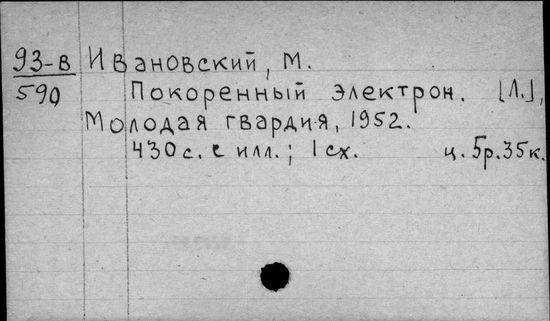 93-в Ивановский, М.
590 Покоренный электрон. [Л.],
Молодая гвардия, 1952.
430с. с илл.; 1 сх. ц. 5р.35к.